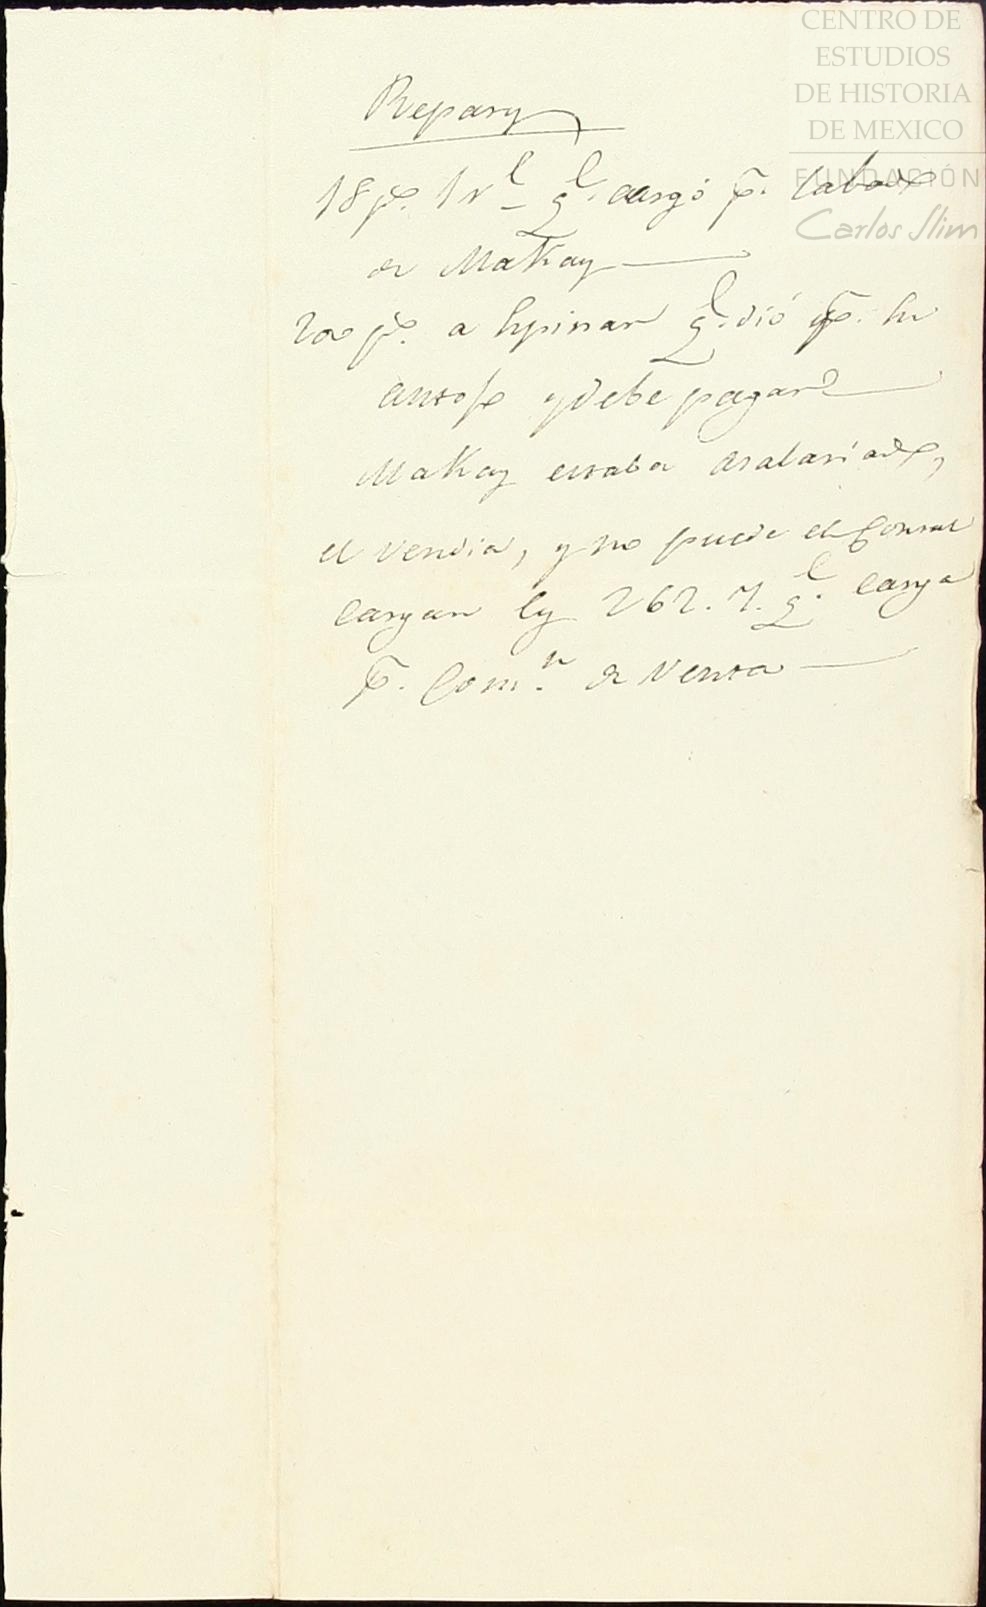 CENTRO DE
ESTUDIOS
DE HISTORIA
DE MEXICO
FUNDACIÓN
Carlos Slim
Reparos
18 p.s 1 r.l q.e cargó p.r
de MaKay
p.s a q.e dió p.r su
antojo y debe pagar
MaKay estaba asalariado,
el vendia, y no puede el Consul
cargar los 262.7. q.e carga
p.r Com.n de Venta